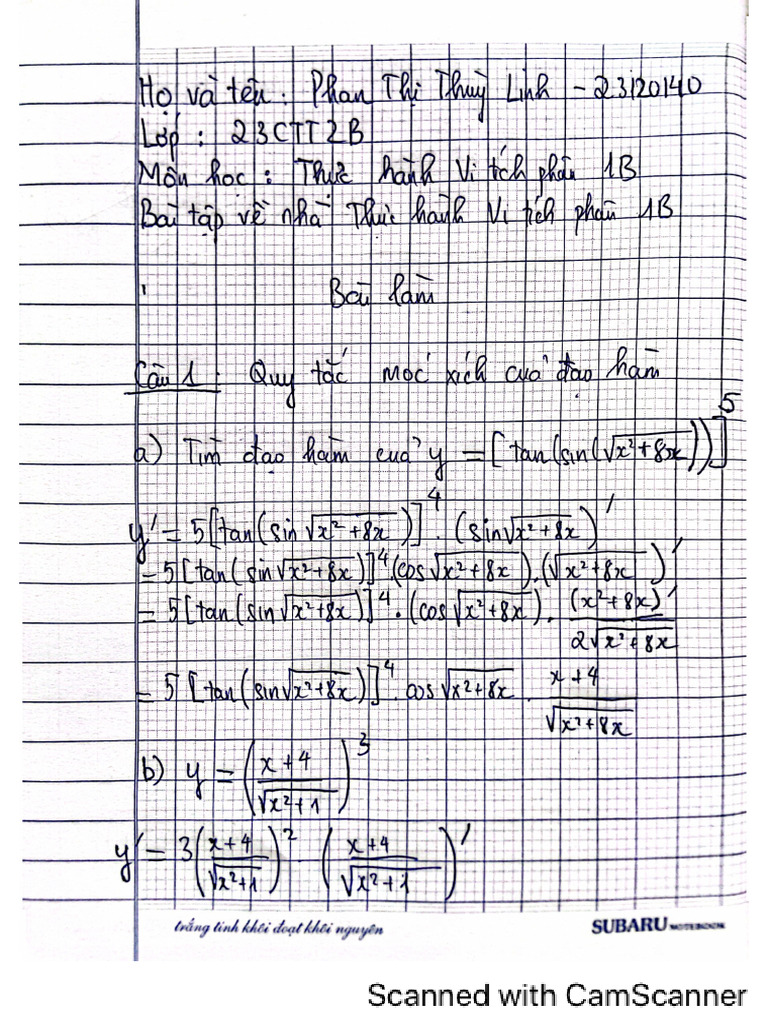 Họ và tên: Phan Thị Thuỳ Linh - 23120140
Lớp: 23CTT2B
Môn học: Thực hành Vi tích phân 1B
Bài tập về nhà Thực hành Vi tích phân 1B
Bài làm
Câu 1: Quy tắc móc xích của đạo hàm
a) Tìm đạo hàm của y = [tan(sin(√(x²+8x)))]⁵
y' = 5[tan(sin√(x²+8x))]⁴ · (sin√(x²+8x))'
= 5[tan(sin√(x²+8x))]⁴ · (cos√(x²+8x)) · (√(x²+8x))'
= 5[tan(sin√(x²+8x))]⁴ · (cos√(x²+8x)) · (x²+8x)' / 2√(x²+8x)
= 5[tan(sin√(x²+8x))]⁴ · cos√(x²+8x) · x+4 / √(x²+8x)
b) y = (x+4 / √(x²+1))³
y' = 3(x+4 / √(x²+1))² · (x+4 / √(x²+1))'
trắng tinh khôi đoạt khôi nguyên SUBARU NOTEBOOK
Scanned with CamScanner